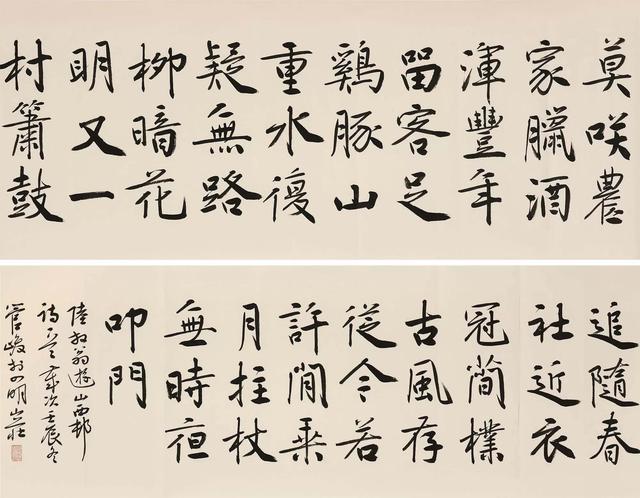 莫咲農
家臘酒
渾豐年
留客足
鷄豚山
重水復
疑無路
柳暗花
明又一
村簫鼓
追隨春
社近衣
冠簡樸
古風存
從今若
許閒乗
月拄杖
無時夜
叩門
陸放翁遊山西邨
詩一首歲次壬辰冬
管峻於四明山莊